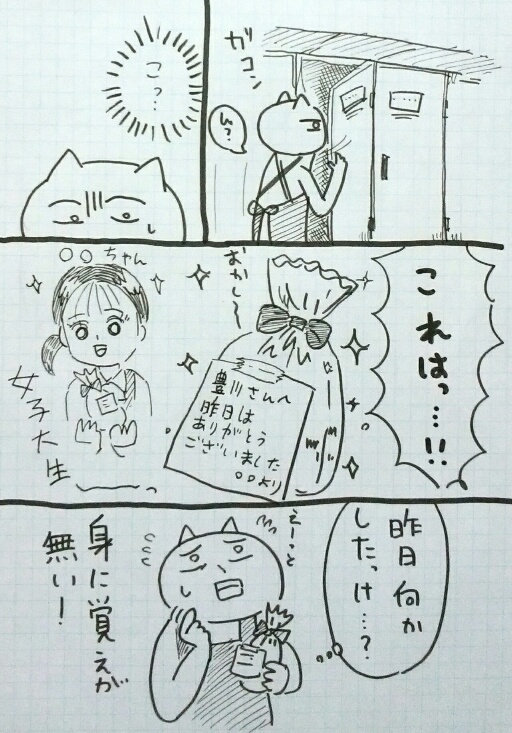 ガコン
ん?
こっ…
これはっ…!!
おかし〜
豊川さんへ
昨日は
ありがとう
ございました
○○より
○○ちゃん
女子大生
昨日何か
したっけ…?
えーっと
身に覚えが
無い!